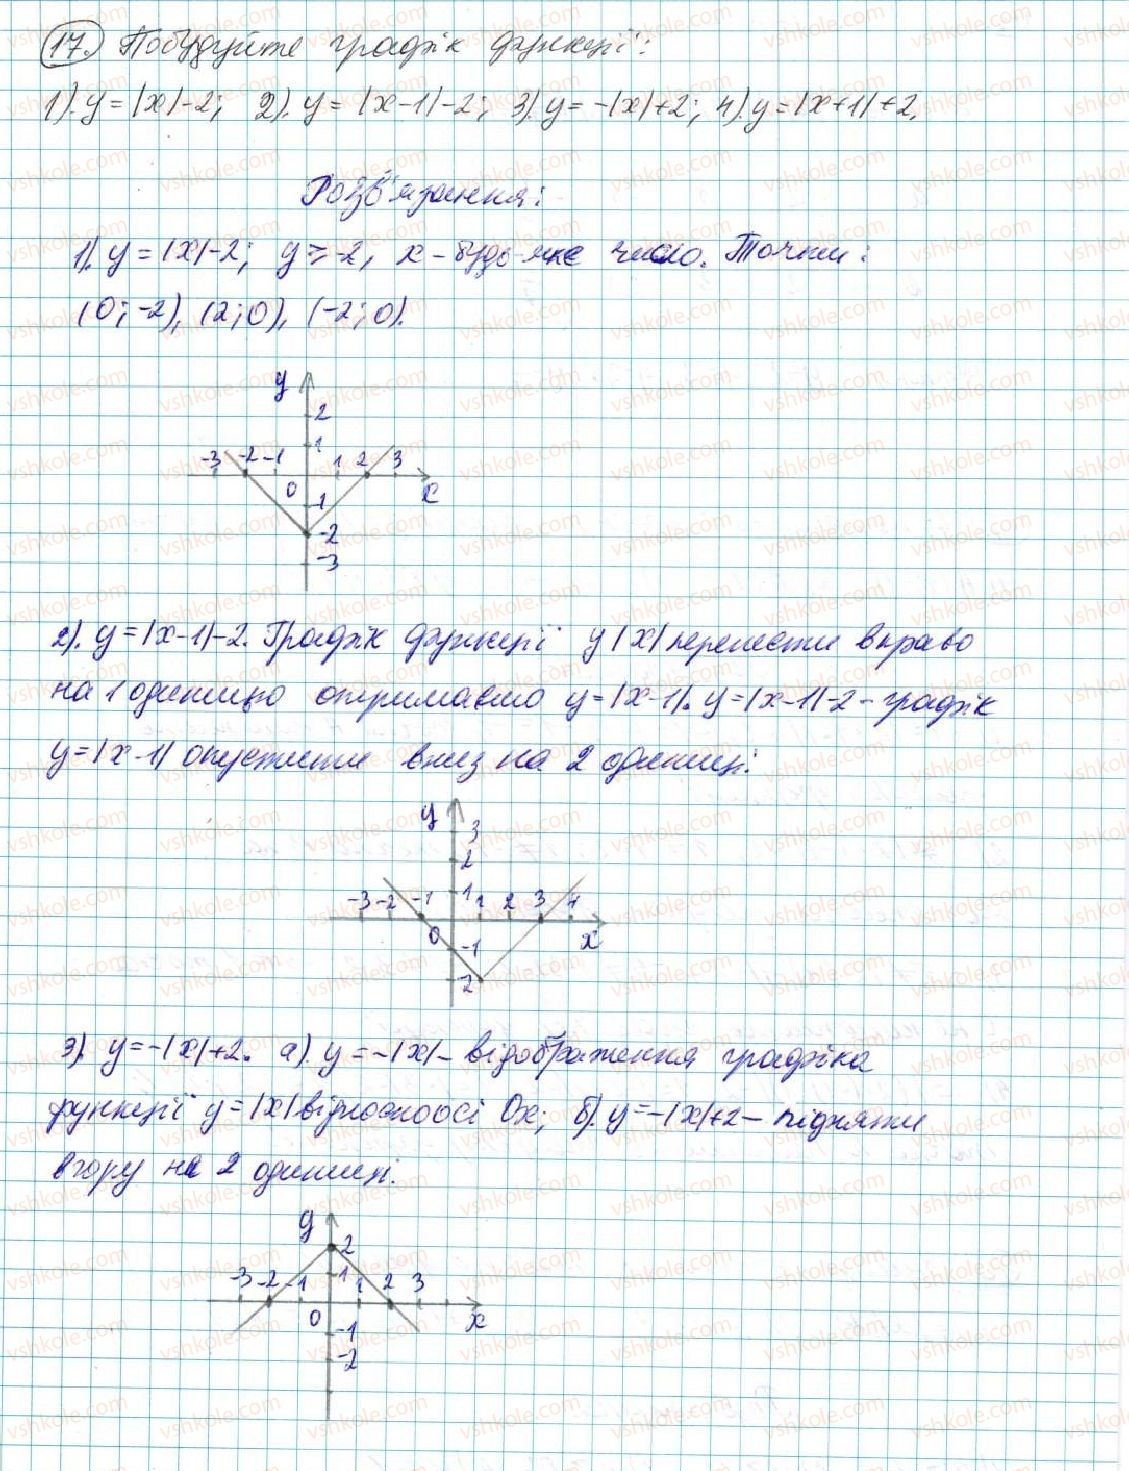 17. Побудуйте графік функції:
1). y = |x|-2; 2). y = |x-1|-2; 3). y = -|x|+2; 4). y = |x+1|+2.
Розв'язання:
1). y = |x|-2; y ≥ -2, x - будь-яке число. Точки:
(0; -2), (2; 0), (-2; 0).
y
2
1
-3 -2 -1 1 2 3
0 x
-1
-2
-3
2). y = |x-1|-2. Графік функції y |x| перенести вправо
на 1 одиницю отримавмо y = |x-1|. y = |x-1|-2 - графік
y = |x-1| опустити вниз на 2 одиниці.
y
3
2
1
-3 -2 -1 1 2 3 4
0 x
-1
-2
3). y = -|x|+2. а). y = -|x| - відображення графіка
функції y = |x| відносно осі Ox; б). y = -|x|+2 - підняти
вгору на 2 одиниці.
y
2
1
-3 -2 -1 1 2 3
0 x
-1
-2
vshkole.com